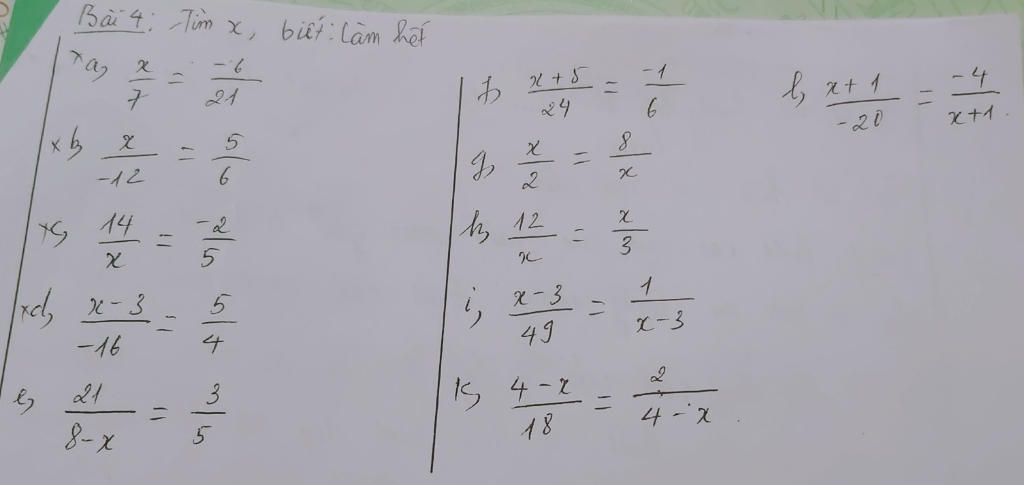 Bài 4: Tìm x, biết: Làm hết
xa, x/7 = -6/21
xb, x/-12 = 5/6
xc, 14/x = -2/5
xd, x-3/-16 = 5/4
e, 21/8-x = 3/5
f, x+5/24 = -1/6
g, x/2 = 8/x
h, 12/x = x/3
i, x-3/49 = 1/x-3
k, 4-x/18 = 2/4-x.
l, x+1/-20 = -4/x+1.